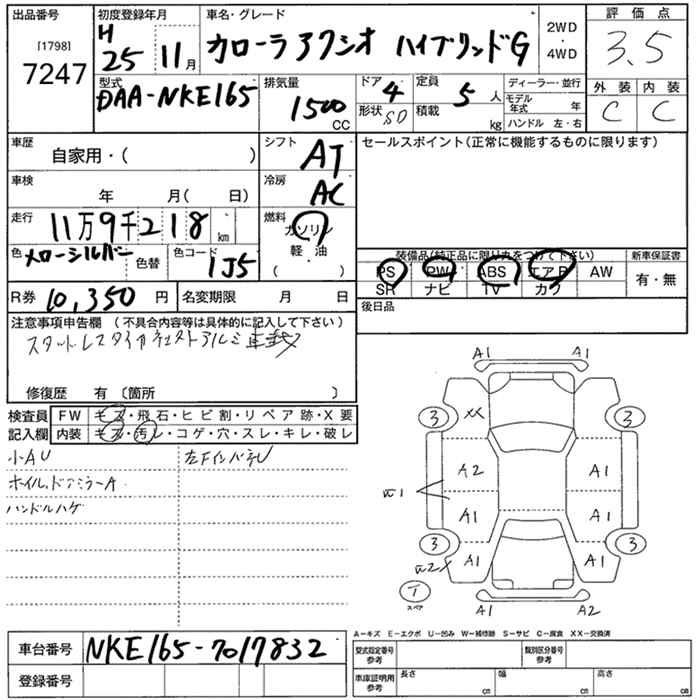 出品番号 初度登録年月 車名・グレード 評価点
[1798] H 2WD
7247 25 11月 カローラアクシオ ハイブリッドG ・4WD 3.5
型式 排気量 ドア 定員 ディーラー・並行 外装 内装
DAA-NKE165 1500 CC 4 5人 モデル年式 年 C C
形状 SD 積載 kg ハンドル 左・右
車歴 シフト セールスポイント(正常に機能するものに限ります)
自家用・( ) AT
車検 冷房
年 月( 日) AC
走行 燃料
11万9千218 km ガソリン
軽・油
( )
色 色替 色コード 装備品(純正品に限り丸をつけて下さい) 新車保証書
1J5 PS PW ABS エアB AW 有・無
SR ナビ TV カワ
R券 10,350円 名変期限 月 日 後日品
注意事項申告欄 (不具合内容等は具体的に記入して下さい)
修復歴 有 〔箇所 〕
検査員 FW キズ・飛石・ヒビ割・リペア跡・X要
記入欄 内装 キズ・汚レ・コゲ・穴・スレ・キレ・破レ
小AU
ホイル、ドアミラーA
ハンドルハゲ
A1 A1
3 XX 3
A2 A1
A1 A1
3 3
A1 A1
T
スペア
A1 A2
A-キズ E-エクボ U-凹み W-補修跡 S-サビ C-腐食 XX-交換済
車台番号 NKE165-7017832
登録番号
型式指定番号 参考 類別区分番号 参考
車庫証明用 参考 長さ cm 幅 cm 高さ cm